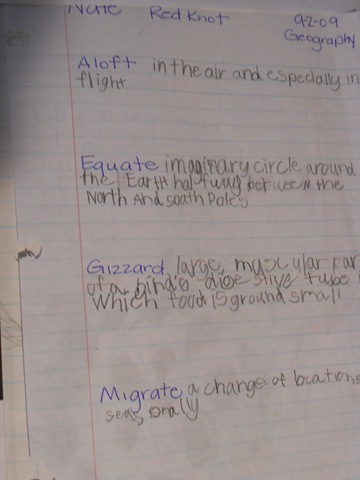 Note Red Knot 9-2-09
Geography
Aloft in the air and especially in
flight
Equate imaginary circle around
the Earth half-way between the
North And south Poles
Gizzard large, muscular par
of a bird's digestive tube i
which food is ground small
Migrate a change of locations
seasonaly